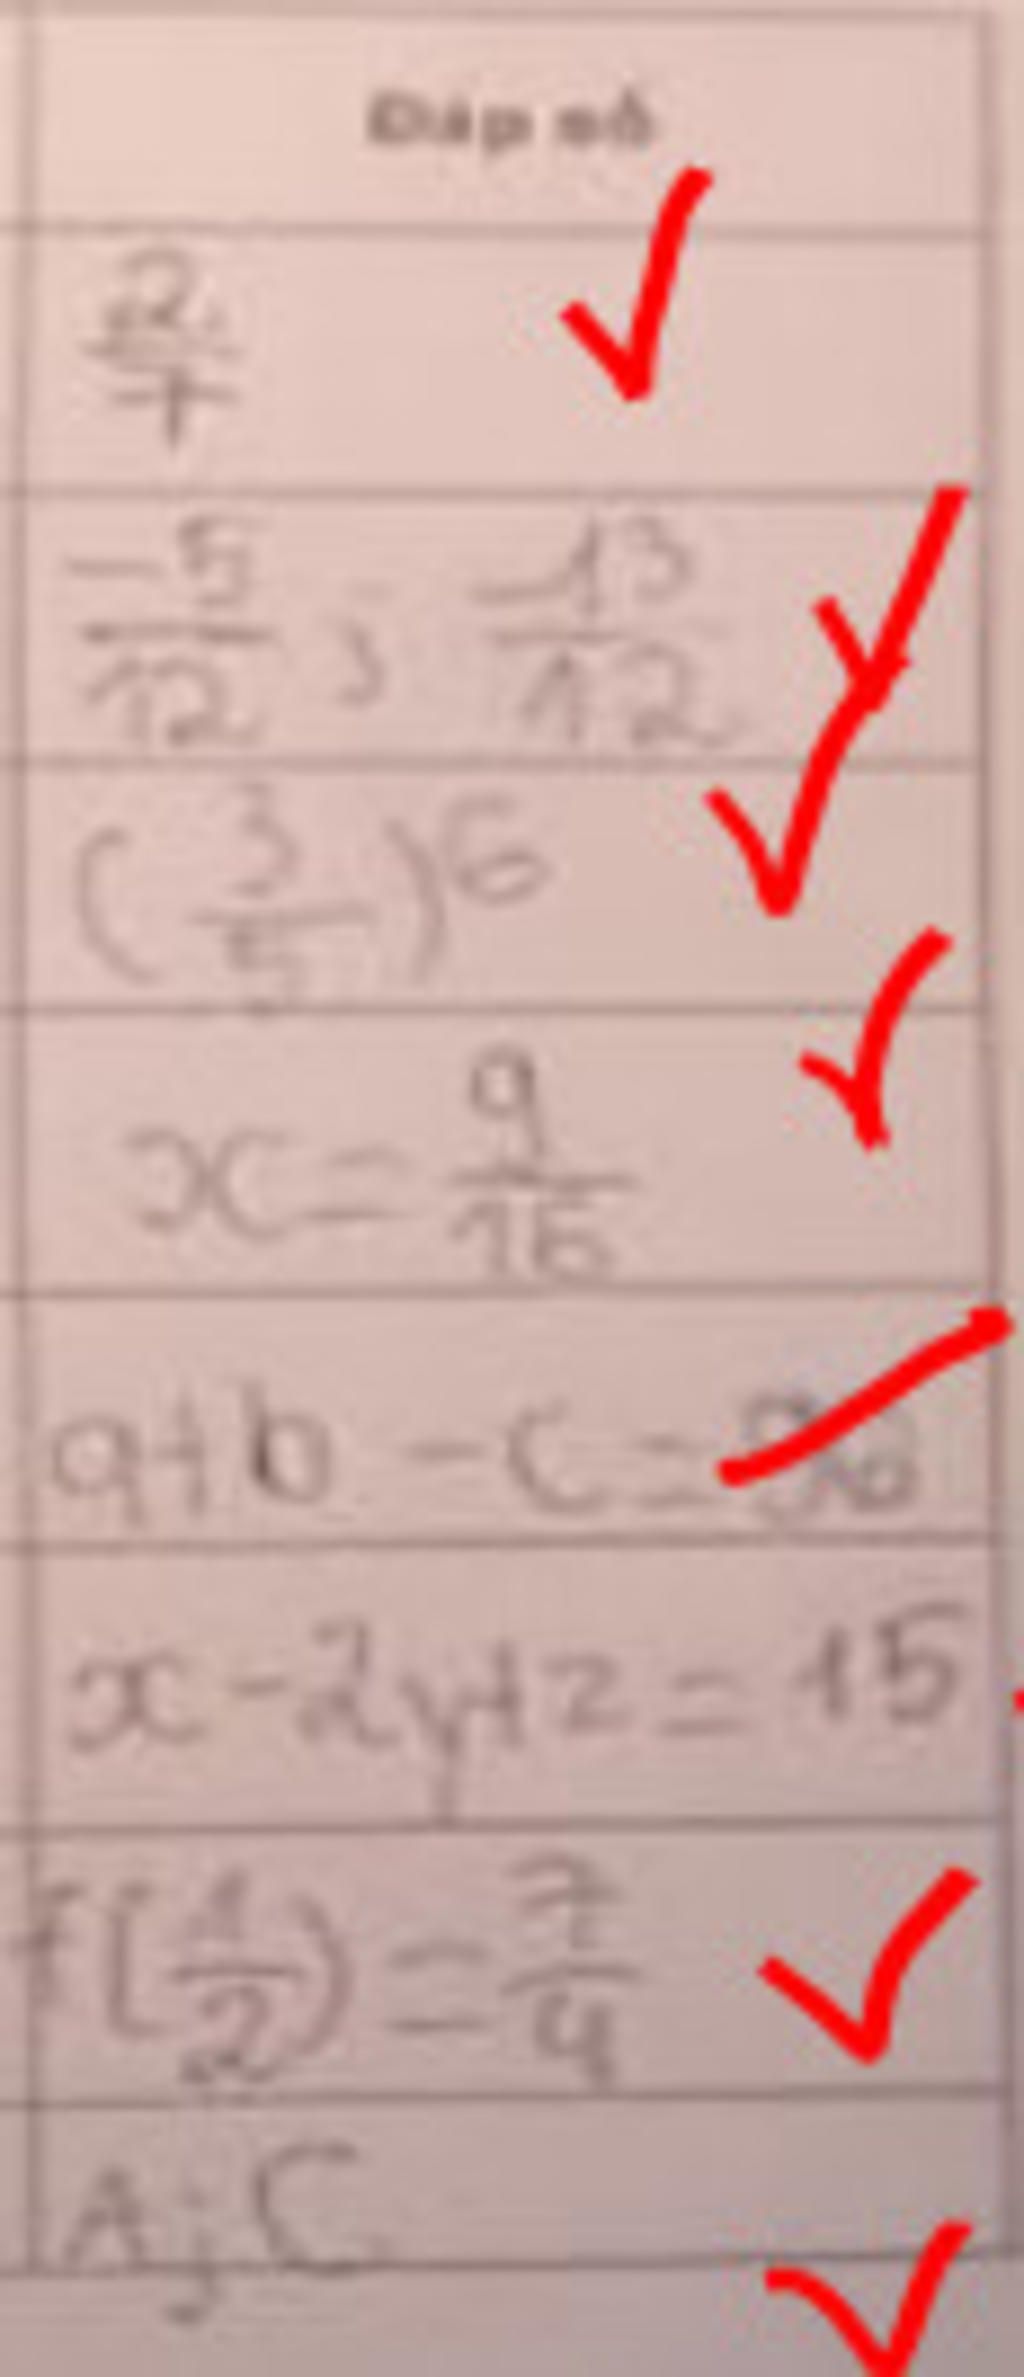 Đáp số
2/7
-5/12 ; -13/12
(3/5)^6
x = 9/16
a+b-c=
x-2y+z=15
f(1/2)=7/4
A; C